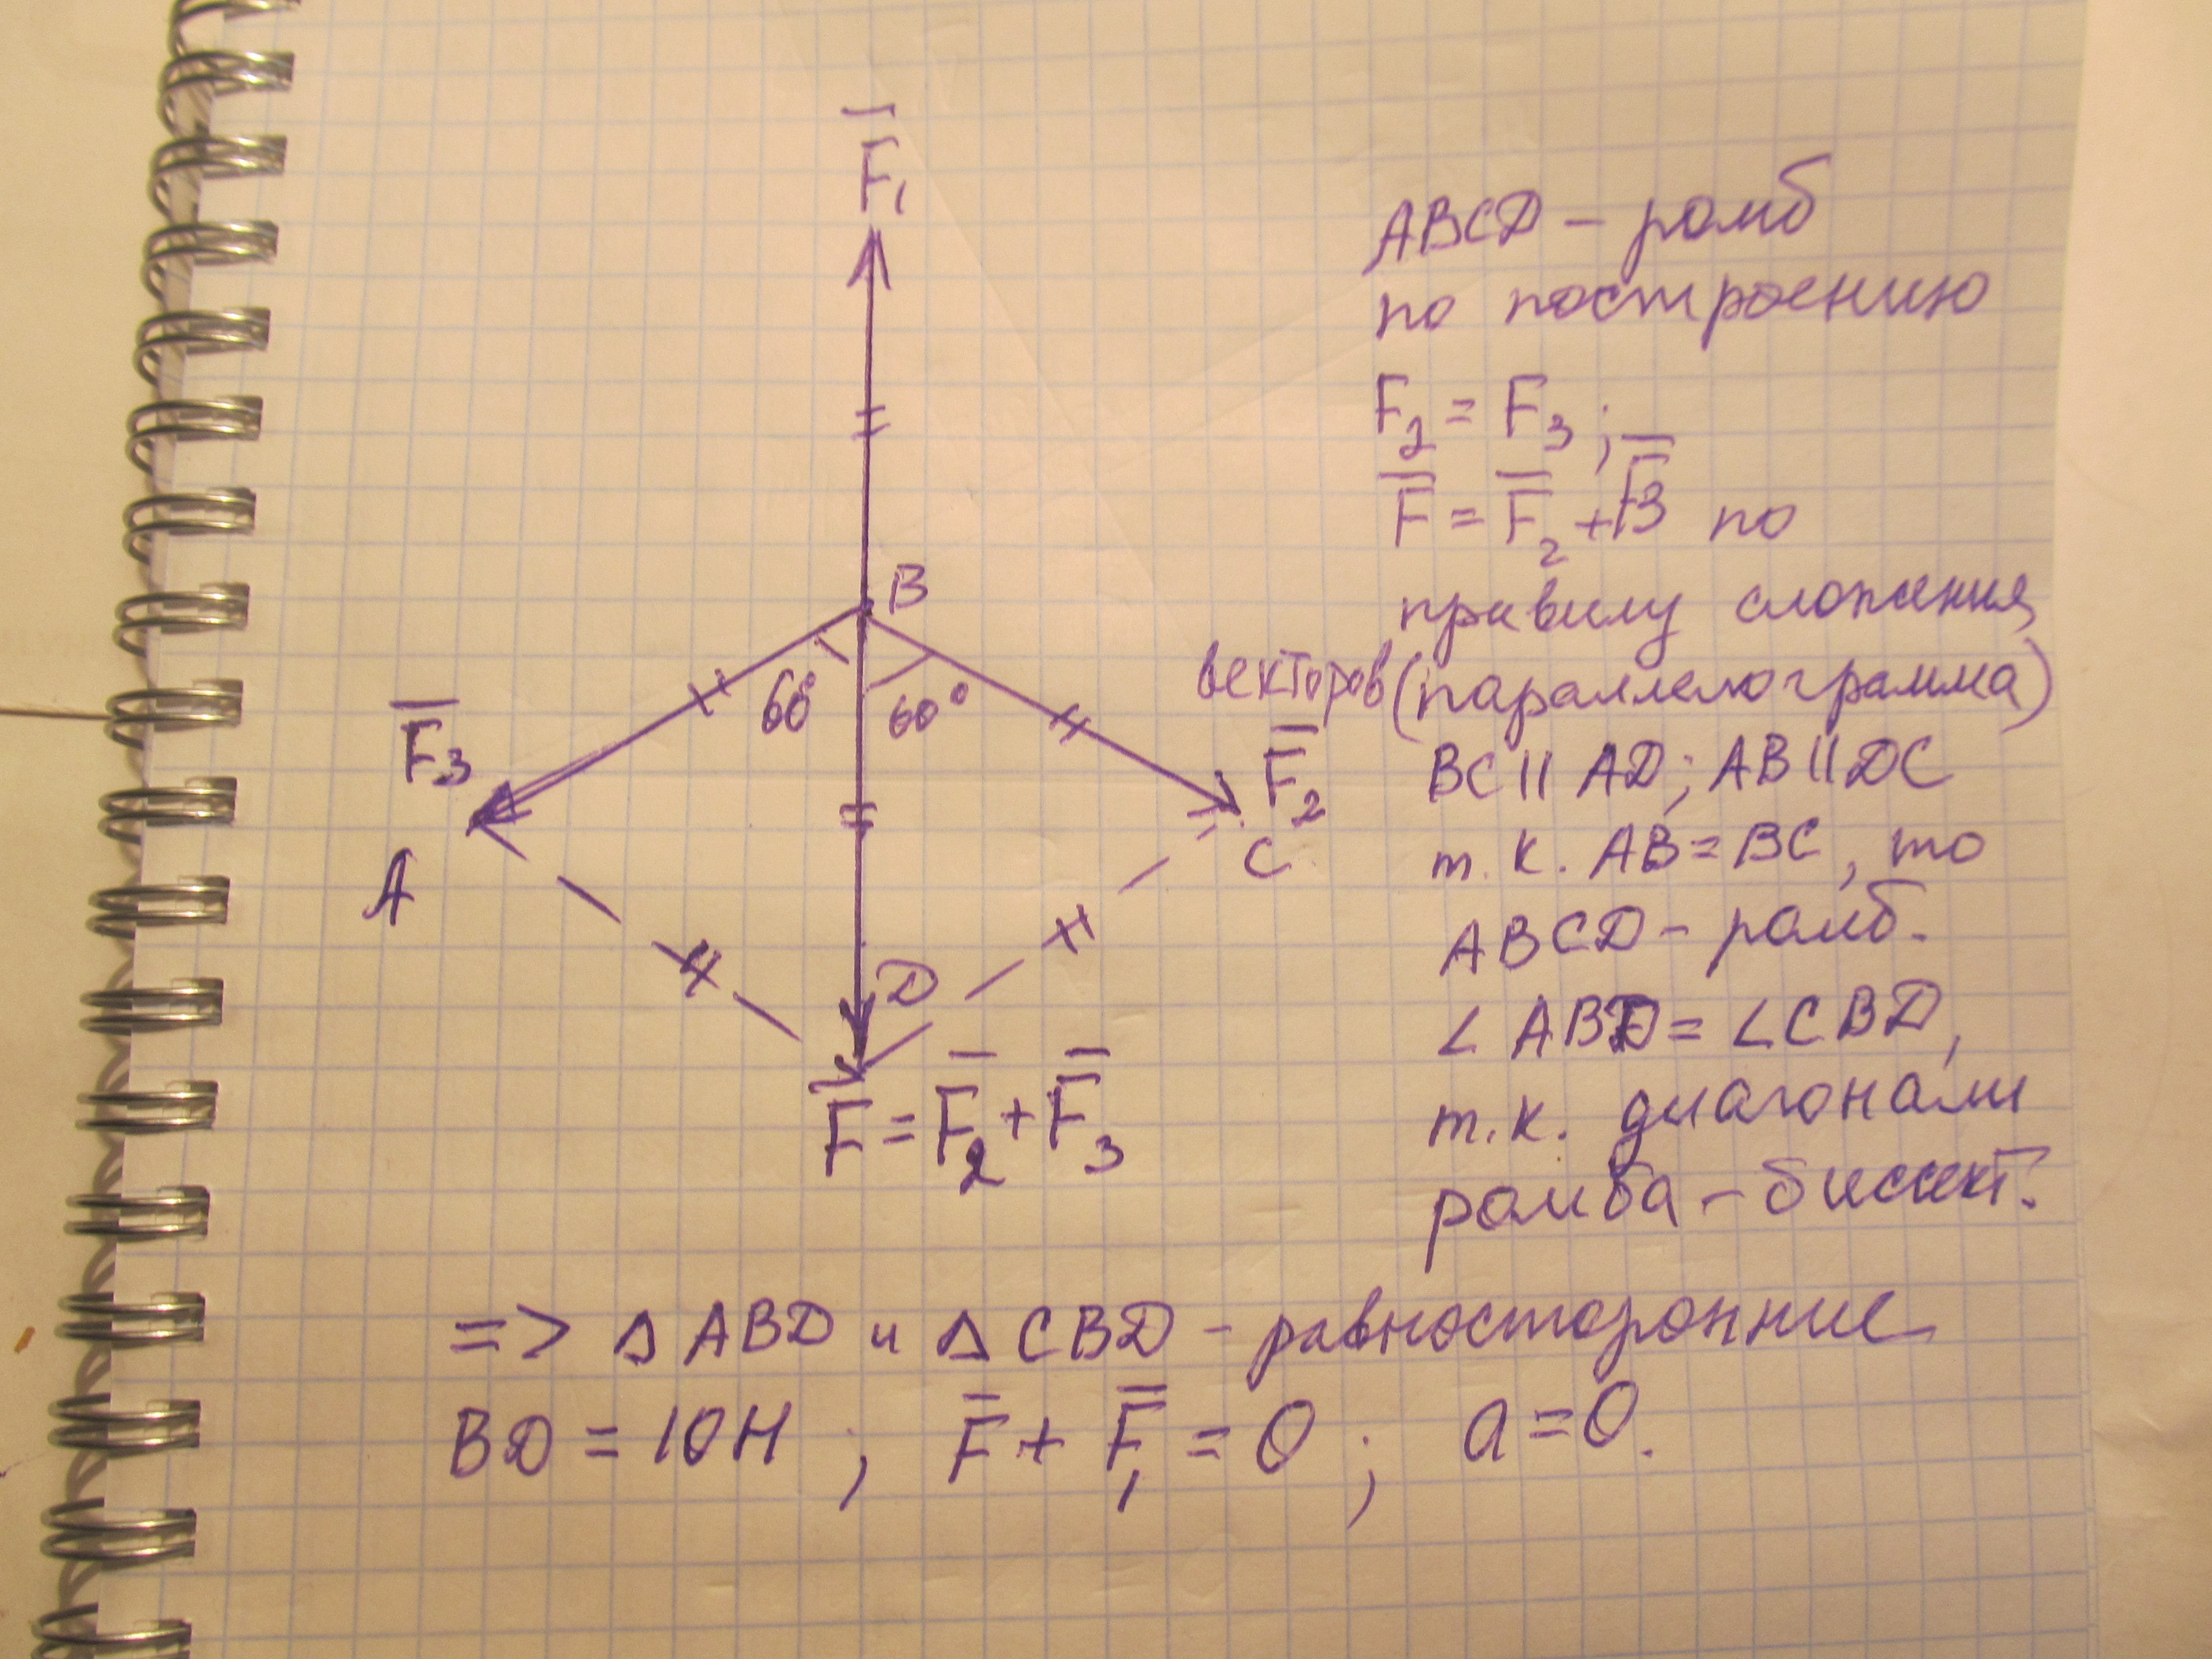 F̅₁
B
60° 60°
F̅₃
F̅₂
A
C
D
F̅ = F̅₂ + F̅₃
ABCD – ромб
по построению
F₂ = F₃ ;
F̅ = F̅₂ + F̅3 по
правилу сложения
векторов (параллелограмма)
BC || AD; AB || DC
т. к. AB = BC, то
ABCD – ромб.
∠ ABD = ∠CBD,
т.к. диагонали
ромба – биссект.
=> Δ ABD и Δ CBD – равносторонние
BD = 10H ; F̅ + F̅₁ = 0 ; a = 0.